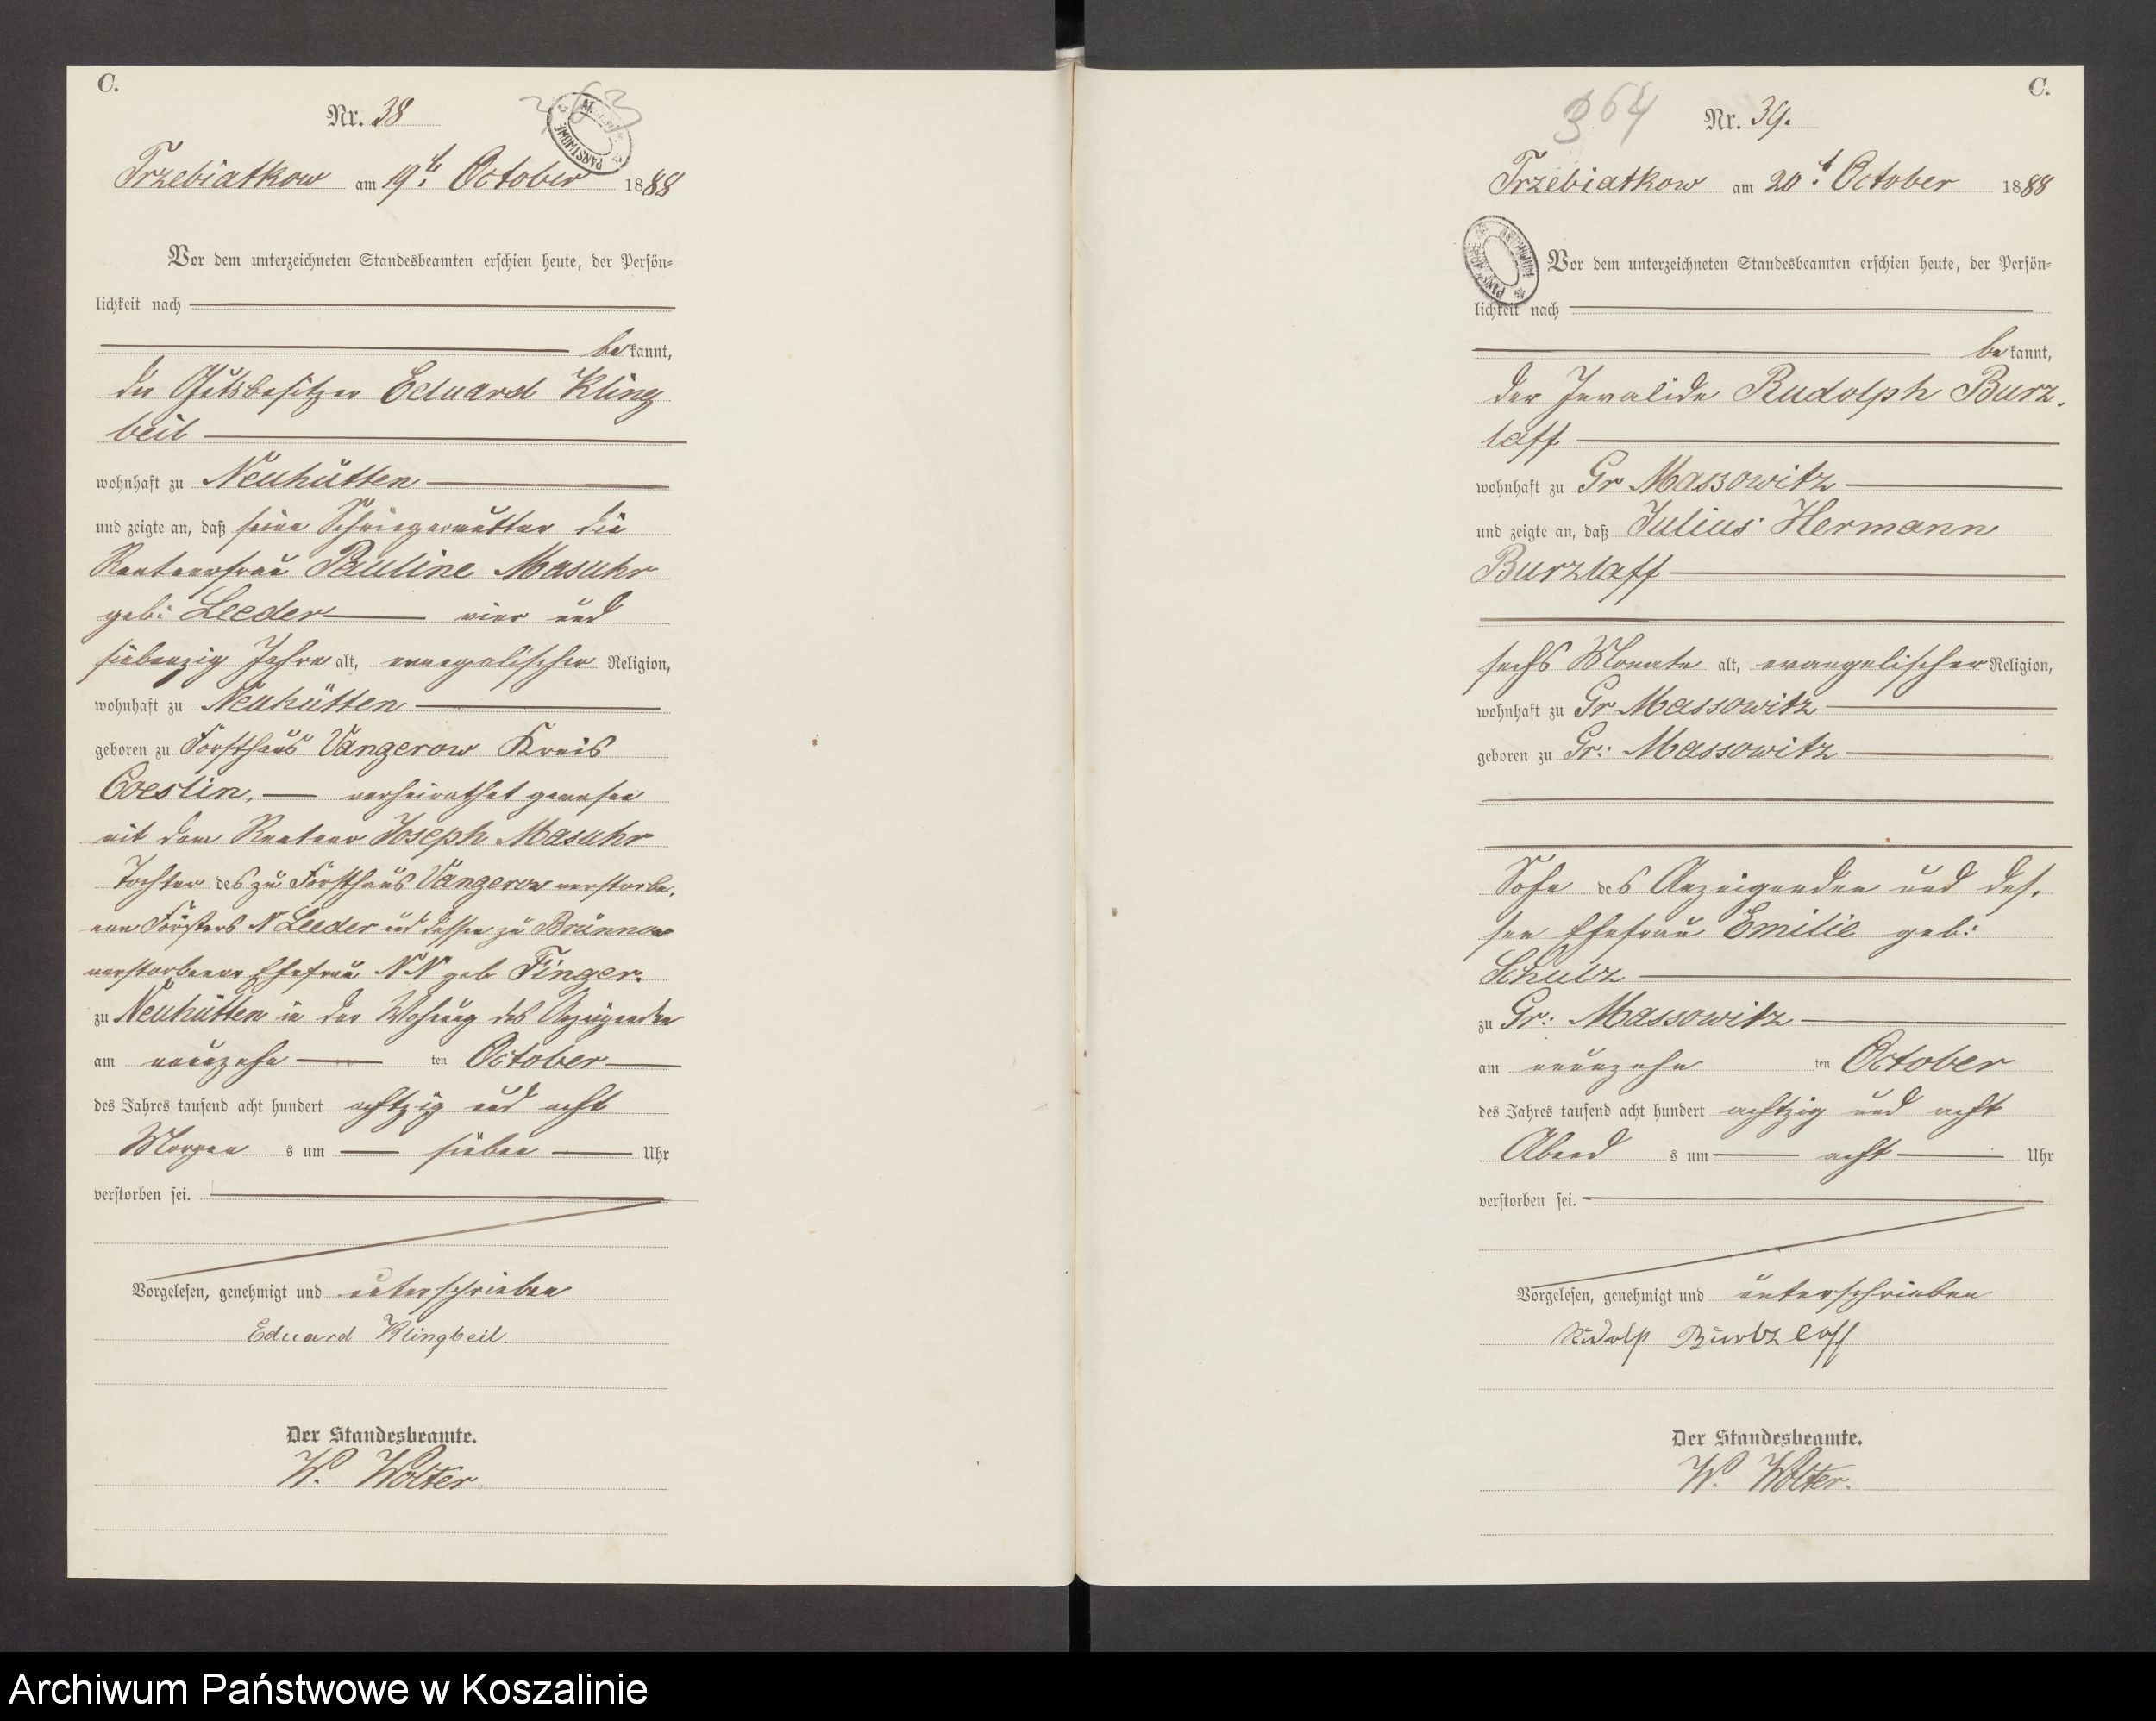 C.
Nr. 38
363
Trzebiatkow am 19t. October 1888
Vor dem unterzeichneten Standesbeamten erschien heute, der Persön-
lichkeit nach
bekannt,
der Gutsbesitzer Eduard Kling
beil
wohnhaft zu Neuhütten
und zeigte an, daß seine Schwiegermutter die
Rentnerfrau Pauline Masuhr
geb: Leeder vier und
siebenzig Jahre alt, evangelischer Religion,
wohnhaft zu Neuhütten
geboren zu Forsthaus Vangerow Kreis
Coeslin, verheirathet gewesen
mit dem Rentner Joseph Masuhr
Tochter des zu Forsthaus Vangerow verstorbe,
nen Försters N Leeder und dessen zu Brünnow
verstorbener Ehefrau NN geb Finger.
zu Neuhütten in der Wohnung des Anzeigenden
am neunzehn ten October
des Jahres tausend acht hundert achtzig und acht
Morgen s um sieben Uhr
verstorben sei.
Vorgelesen, genehmigt und unterschrieben
Eduard Klingbeil.
Der Standesbeamte.
W. Wolter.
C.
364
Nr. 39.
Trzebiatkow am 20t. October 1888
ARCHIWUM PAŃSTWOWE
Vor dem unterzeichneten Standesbeamten erschien heute, der Persön-
lichkeit nach
bekannt,
der Invalide Rudolph Burz-
laff
wohnhaft zu Gr Massowitz
und zeigte an, daß Julius Hermann
Burzlaff
sechs Monate alt, evangelischer Religion,
wohnhaft zu Gr Massowitz
geboren zu Gr: Massowitz
Sohn des Anzeigenden und des-
sen Ehefrau Emilie geb:
Schulz
zu Gr: Massowitz
am neunzehn ten October
des Jahres tausend acht hundert achtzig und acht
Abend s um acht Uhr
verstorben sei.
Vorgelesen, genehmigt und unterschrieben
Rudolp Burbzlaff
Der Standesbeamte.
W. Wolter.
Archiwum Państwowe w Koszalinie